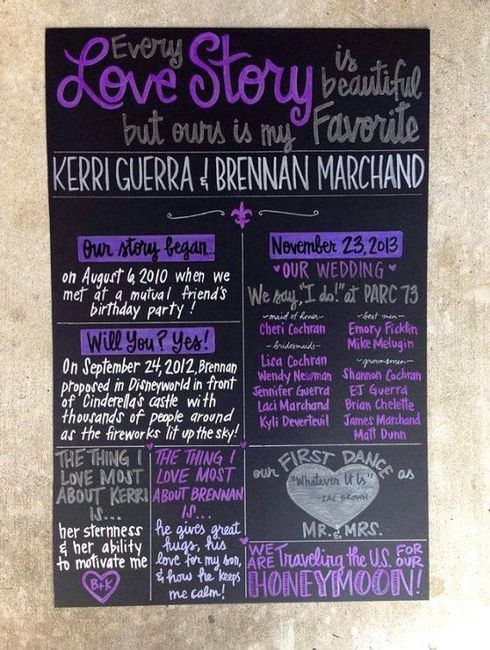 Every
Love Story is
beautiful
but ours is my Favorite
KERRI GUERRA & BRENNAN MARCHAND
Our story began...
on August 6, 2010 when we
met at a mutual friend's
birthday party!
Will You? Yes!
On September 24, 2012, Brennan
proposed in Disneyworld in front
of Cinderella's castle with
thousands of people around
as the fireworks lit up the sky!
THE THING I
LOVE MOST
ABOUT KERRI
IS...
her sternness
& her ability
to motivate me
B+K
THE THING I
LOVE MOST
ABOUT BRENNAN
IS...
he gives great
hugs, his
love for my son,
& how he keeps
me calm!
November 23, 2013
OUR WEDDING
We say, "I do!" at PARC 73
maid of honor
Cheri Cochran
bridesmaids
Lisa Cochran
Wendy Newman
Jennifer Guerra
Laci Marchand
Kyli Deverteuil
best men
Emory Ficklin
Mike Melugin
groomsmen
Shannon Cochran
EJ Guerra
Brian Chelette
James Marchand
Matt Dunn
our FIRST DANCE as
"Whatever It Is"
-ZAC BROWN-
MR. & MRS.
WE ARE Traveling the U.S. FOR OUR
HONEYMOON!